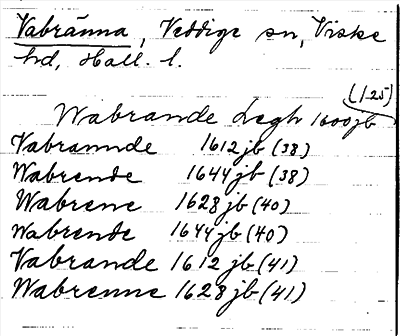 Vabränna, Veddige sn, Viske
hd, Hall. l.
(125)
Wabrande Legh 1600 jb
Vabrannde 1612 jb (38)
Wabrende 1644 jb (38)
Wabrene 1628 jb (40)
Wabrende 1644 jb (40)
Vabrande 1612 jb (41)
Wabrenne 1628 jb (41)